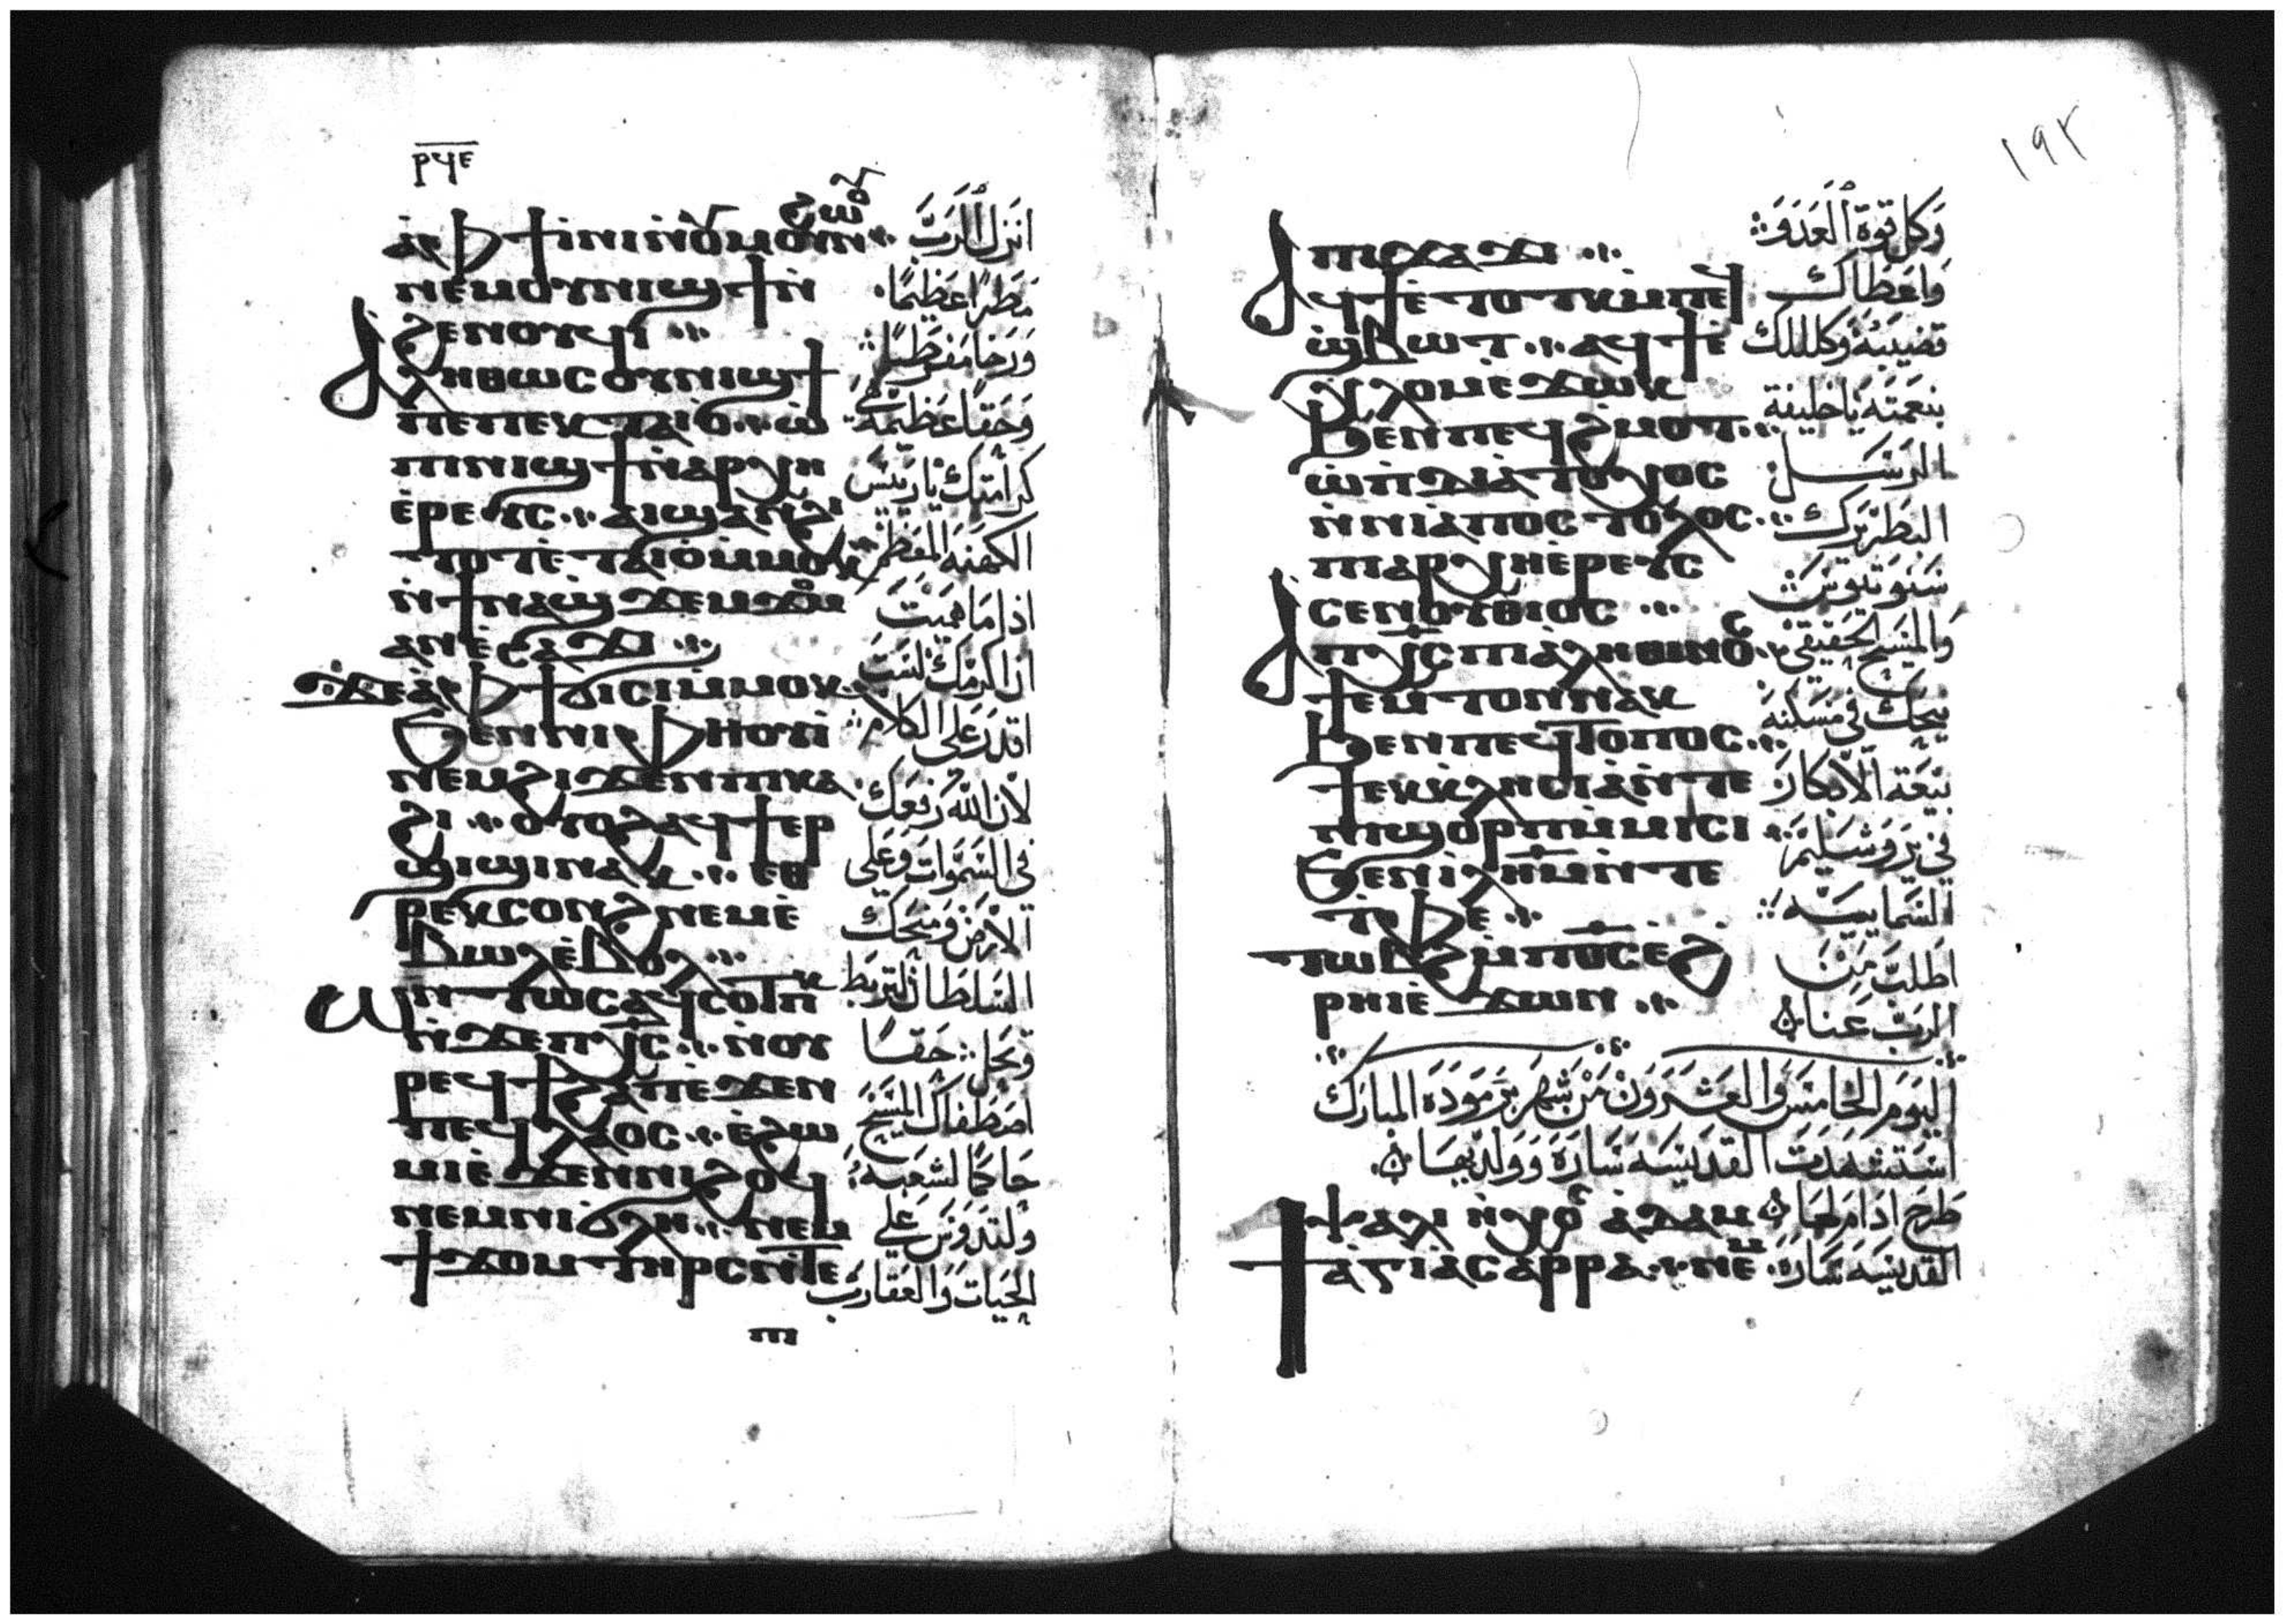 ⲣϥⲉ
ⲁ̀ⲫϯⲓⲛⲓⲛ̀ⲟⲩⲙⲟⲩⲛ̀ϩⲱⲟⲩ
ⲛⲉⲙⲟⲩⲛⲓϣϯⲛ̀
ϩⲉⲛⲟⲩϥⲓ
ⲁⲗⲏⲑⲱⲥⲟⲩⲛⲓϣϯ
ⲡⲉⲡⲉⲕⲧⲁⲓⲟ ⲱ̀
ⲡⲓⲛⲓϣϯⲛ̀ⲁⲣⲭⲏ
ⲉ̀ⲣⲉⲩⲥ ⲁⲓϣⲁⲛϩⲓ
ⲧⲟⲧⲉ̀ⲧⲁⲓⲟ̀ⲙ̀ⲙⲟⲕ
ⲛ̀ϯⲛⲁϣϫⲉⲙϫⲟⲙ
ⲁⲛⲉ̀ⲥⲁϫⲓ
ϫⲉⲁ̀ⲫϯϭⲓⲥⲓⲙ̀ⲙⲟⲕ
ϧⲉⲛⲛⲓⲫⲏⲟⲩⲓ̀
ⲛⲉⲙϩⲓϫⲉⲛⲡⲓⲕⲁ
ϩⲓ ⲟⲩⲟϩⲁϥϯⲉⲣ
ϣⲓϣⲓⲛⲁⲕ ⲉⲑ
ⲣⲉⲕⲥⲟⲛϩⲛⲉⲙⲉ̀
ⲃⲱⲗⲉ̀ⲃⲟⲗ
ⲟⲛⲧⲱⲥⲁϥⲥⲟⲧⲡⲕ
ⲛ̀ϫⲉⲡⲭ̅ⲥ̅ ⲛ̀ⲟⲩ
ⲣⲉϥϯϩⲁⲡⲉ̀ϫⲉⲛ
ⲡⲉϥⲗⲁⲟⲥ ⲉ̀ϩⲱ
ⲙⲓⲉ̀ϫⲉⲛⲛⲓϩⲟϥ
ⲛⲉⲙⲛⲓϭⲗⲏ ⲛⲉⲙ
ϯϫⲟⲙⲧⲏⲣⲥⲛ̀ⲧⲉ
ⲡⲓ
انزل الرب
مطرا عظيما
وحقا عظيمة هي
كرامتك يا رييس
الكهنة المعظم
اذا ما هميت
ان اكرمك لست
اقدر على الكلام
لان الله رفعك
في السموات وعلى
الارض ومنحك
السلطان لتربط
وتحل حقا
اصطفاك المسيح
حاكما لشعبه
ولتدوس على
الحيات والعقارب
١٩٢
ⲡⲓϫⲁϫⲓ
ⲁϥϯⲉ̀ⲧⲟⲧⲕⲙ̀ⲡⲉϥ
ϣ̀ⲃⲱⲧ ⲁϥϯⲉ̀
ⲭⲗⲟⲙⲉ̀ϫⲱⲕ
ϧⲉⲛⲡⲉϥϩⲙⲟⲧ
ⲱ̀ⲡⲓⲇⲓⲁⲧⲟⲭⲟⲥ
ⲛ̀ⲛⲓⲁ̀ⲡⲟⲥⲧⲟⲗⲟⲥ
ⲡⲓⲁⲣⲭⲏⲉ̀ⲣⲉⲩⲥ
ⲁⲥⲉⲛⲟⲩⲑⲓⲟⲥ
ⲁⲡⲭ̅ⲥ̅ⲡⲓⲁⲗⲏⲑⲓⲛⲟⲥ
ϯⲉⲙⲧⲟⲛⲛⲁⲕ
ϧⲉⲛⲡⲉϥⲧⲟⲡⲟⲥ
ϯⲉⲕⲕⲗⲏⲥⲓⲁ̀ⲛ̀ⲧⲉ
ⲡⲓϣⲟⲣⲡⲙ̀ⲙⲓⲥⲓ
ϧⲉⲛⲓⲗ̅ⲏ̅ⲙ̅ⲛ̀ⲧⲉ
ⲧ̀ⲫⲉ
ⲧⲱⲃϩⲙ̀ⲡ⳪ⲉϩ
ⲣⲏⲓⲉ̀ϫⲱⲛ
وكل قوة العدو
واعطاك
قضيبه وكللك
بنعمته يا خليفة
الرسل
البطريرك
شنوتيوس
والمسيح الحقيقي
ينيحك في مسكنه
بيعة الابكار
في يروشليم
السماييه
اطلب من
الرب عنا
اليوم الخامس والعشرون من شهر برموده المبارك
استشهدت القديسه سارة وولديها
ⲯⲁⲗⲓ ⲛ̀ⲭⲟⲣⲟⲥ ⲁ̀ⲇⲁⲙ طرح ادام لها
ϯⲁ̀ⲅⲓⲁ̀ⲥⲁⲣⲣⲁ ⲛⲉⲙ القديسه ساره